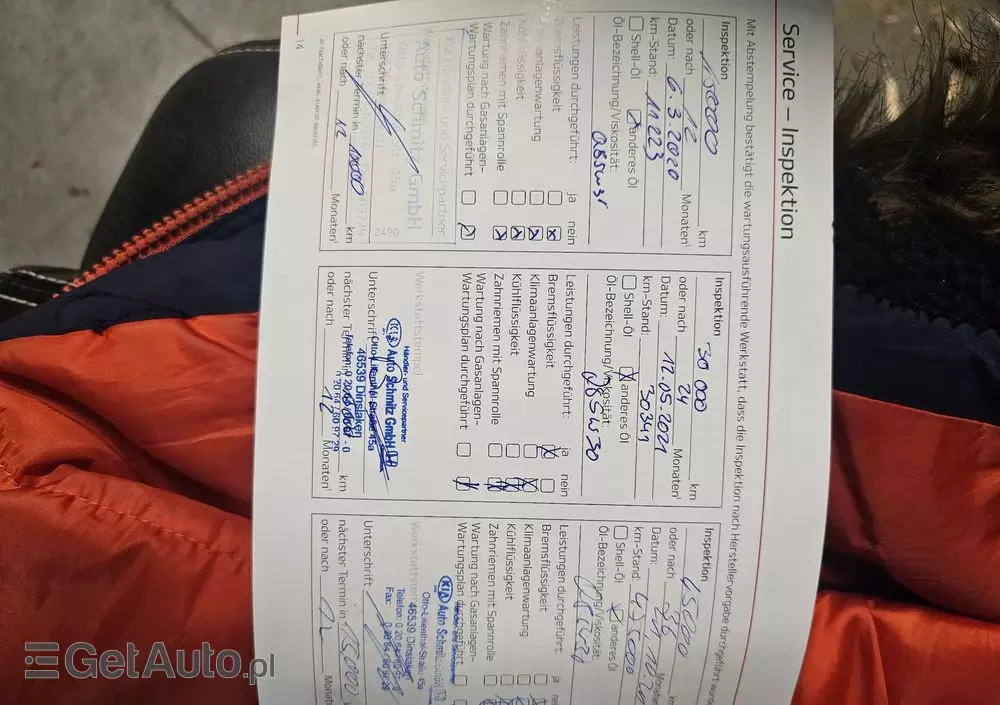 Service – Inspektion
Mit Abstempelung bestätigt die wartungsausführende Werkstatt, dass die Inspektion nach Herstellervorgabe durchgeführt wurde
Inspektion 15000 km
oder nach 12 Monaten¹
Datum: 6.3.2020
km-Stand: 11223
Shell-Öl anderes Öl
Öl-Bezeichnung/Viskosität:
Leistungen durchgeführt: ja nein
Bremsflüssigkeit
Klimaanlagenwartung
Kühlflüssigkeit
Zahnriemen mit Spannrolle
Wartung nach Gasanlagen-
Wartungsplan durchgeführt
Händler- und Servicepartner
Auto Schmitz GmbH
Unterschrift
nächster Termin in km
oder nach 12 Monaten¹
14
Inspektion 30 000 km
oder nach 24 Monaten¹
Datum: 12.05.2021
km-Stand: 30341
Shell-Öl anderes Öl
Öl-Bezeichnung/Viskosität:
Leistungen durchgeführt: ja nein
Bremsflüssigkeit
Klimaanlagenwartung
Kühlflüssigkeit
Zahnriemen mit Spannrolle
Wartung nach Gasanlagen-
Wartungsplan durchgeführt
Werkstattstempel
Händler- und Servicepartner
KIA Auto Schmitz GmbH
Otto-Lilienthal-Straße 45a
46539 Dinslaken
Unterschrift
nächster Termin in km
oder nach 12 Monaten¹
Inspektion 45000
oder nach 36 Monaten
Datum:
km-Stand:
Shell-Öl anderes Öl
Öl-Bezeichnung/Viskosität:
Leistungen durchgeführt:
Bremsflüssigkeit
Klimaanlagenwartung
Kühlflüssigkeit
Zahnriemen mit Spannrolle
Wartung nach Gasanlagen-
Wartungsplan durchgeführt
Werkstattstempel
KIA Auto Schmitz GmbH
Otto-Lilienthal-Straße 45a
46539 Dinslaken
Unterschrift
nächster Termin in
oder nach 12 Monat
GetAuto.pl